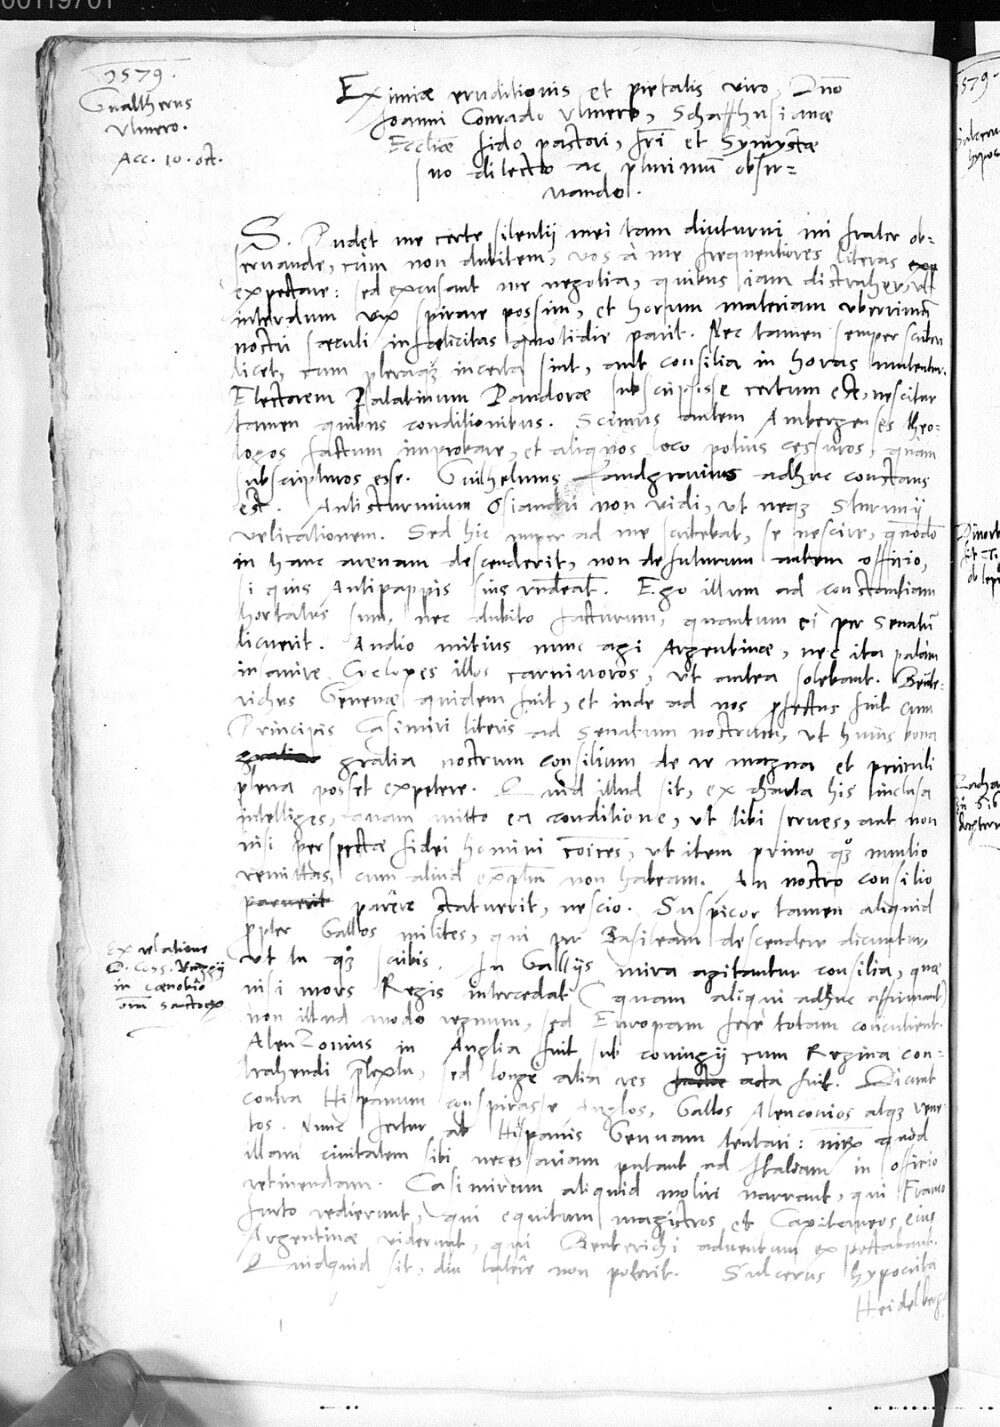 00119701
1579.
Gualtherus
Ulmero.
Acc. 10. oct.
Eximiae eruditionis et pietatis viro, Dno
Joanni Conrado Ulmero, Schaffhusianae
Eccliae fido pastori, fri et Symystae
suo dilecto ac plurimũ obser=
vando.
S. Pudet me certe silentij mei tam diuturni mi frater ob=
servande, cùm non dubitem, vos à me frequentiores literas
expectare: sed excusant me negotia, quibus iam distrahor, ut
interdum vix spirare possim, et horum materiam uberrimã
nostri saeculi infoelicitas quotidie parit. Nec tamen semper scribere
licet, cum pleraq; incerta sint, aut consilia in horas mutentur.
Electorem Palatinum Pandorae subscripsisse certum est, nescitur
tamen quibus conditionibus. Scimus autem Ambergenses theo=
logos factum improbare, et aliquos loco potius cessuros, quàm
subscripturos esse. Guilhelmus Landgravius adhuc constans
est. Antisturmium Osiandri non vidi, ut neq; Sturmij
velicationem. Sed hic nuper ad me scribebat, se nescire, quõdo
in hanc arenam descenderit, non defuturum autem officio,
si quis Antipappis suis respondeat. Ego illum ad constantiam
hortatus sum, nec dubito facturum, quantum ei per Senatũ
licuerit. Audio mitius nunc agi Argentinae, nec ita palàm
insanire Cyclopes illos carnivoros, ut antea solebant. Beute=
richus Genevae quidem fuit, et inde ad nos pfectus fuit cum
Principis Casimiri literis ad Senatum nostrum, ut huius bona
gratia nostrum consilium de re magna et periculi
plena posset expetere. Quid illud sit, ex charta his inclusa
intelliges, quam mitto ea conditione, ut tibi serves, aut non
nisi perspectae fidei homini cõices, ut item primo quoq; nuntio
remittas, cum aliud explum non habeam. An nostro consilio
parere statuerit, nescio. Suspicor tamen aliquid
ppter Gallos milites, qui per Basileam descendere dicuntur,
ut tu quoq; scribis. In Gallijs mira agitantur consilia, quae
nisi mors Regis intercedat (quam aliqui adhuc affirmant)
non illud modo regnum, sed Europam ferè totam concutient.
Alenzonius in Anglia fuit sub coniugij cum Regina con=
trahendi ptextu, sed longe alia res acta fuit. Dicunt
contra Hispanum conspirasse Anglos, Gallos Alenconios atq; Vene=
tos. Nunc fertur ab Hispanis Genuam tentari: nimirum quòd
illam civitatem sibi necessariam putant ad Italiam in officio
retinendam. Casimirum aliquid moliri narrant, qui Franco
furto redierunt, qui equitum magistros et Capitaneos eius
Argentinae viderunt, qui Beuterichi adventum expectabant.
Quidquid sit, diu latere non poterit. Sulcerus hypocrita
Heidelberg
Ex relatione
D. Coss. Ringgij
in coenobio
oim sanctorum
1579.